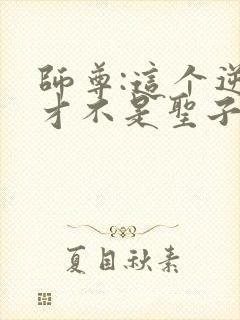 師尊:這个逆
才不是聖子
夏目秋素